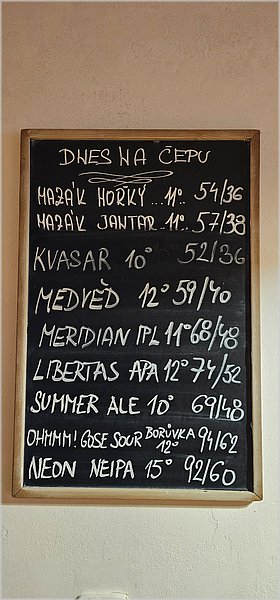 DNES NA ČEPU
MAZÁK HOŘKÝ ... 11°. 54/36
MAZÁK JANTAR .. 11°. 57/38
KVASAR 10° 52/36
MEDVĚD 12° 59/40
MERIDIAN IPL 11° 68/48
LIBERTAS APA 12° 74/52
SUMMER ALE 10° 69/48
OHMMM! GOSE SOUR BORŮVKA 12° 94/62
NEON NEIPA 15° 92/60